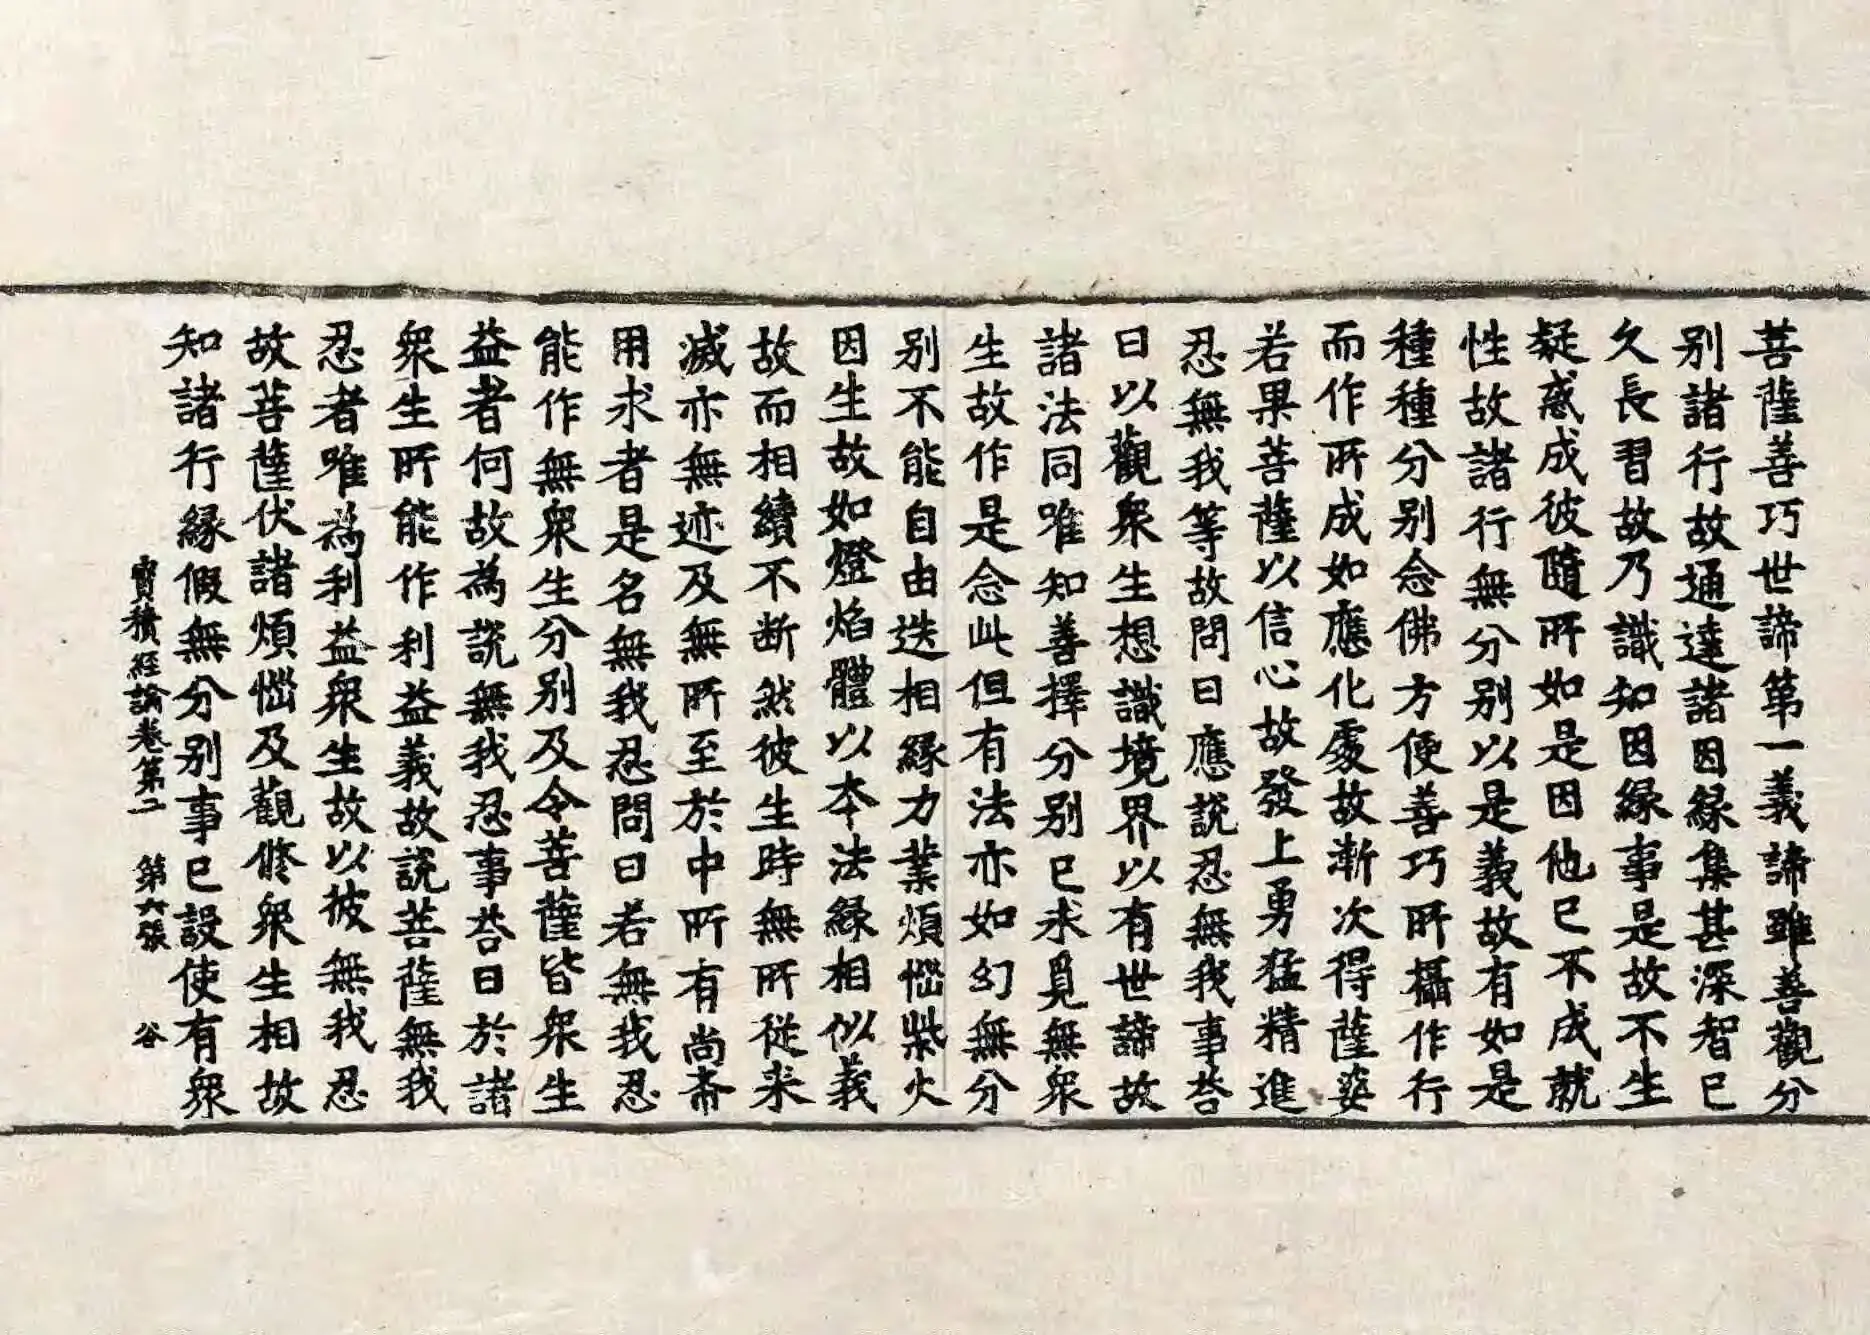 菩薩善巧世諦第一義諦雖善觀分
别諸行故通達諸因縁集甚深智已
久長習故乃識知因縁事是故不生
疑惑成彼隨所如是因他已不成就
性故諸行無分别以是義故有如是
種種分别念佛方便善巧所攝作行
而作所成如應化處故漸次得薩婆
若果菩薩以信心故發上勇猛精進
忍無我等故問曰應說忍無我事荅
曰以觀衆生想識境界以有世諦故
諸法同唯知善擇分别已求覓無衆
生故作是念此但有法亦如幻無分
别不能自由迭相縁力業煩惱柴火
因生故如燈焰體以本法縁相似義
故而相續不断然彼生時無所従来
滅亦無迹及無所至於中所有尚斋
用求者是名無我忍問曰若無我忍
能作無衆生分别及令菩薩皆衆生
益者何故為說無我忍事荅曰於諸
衆生所能作利益義故說菩薩無我
忍者唯為利益衆生故以彼無我忍
故菩薩伏諸煩惱及觀修衆生相故
知諸行縁假無分别事已設使有衆
寳積經論卷第二　第六張　谷